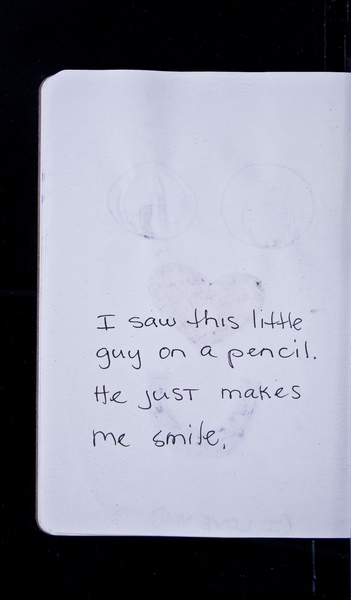 I saw this little
guy on a pencil.
He just makes
me smile.